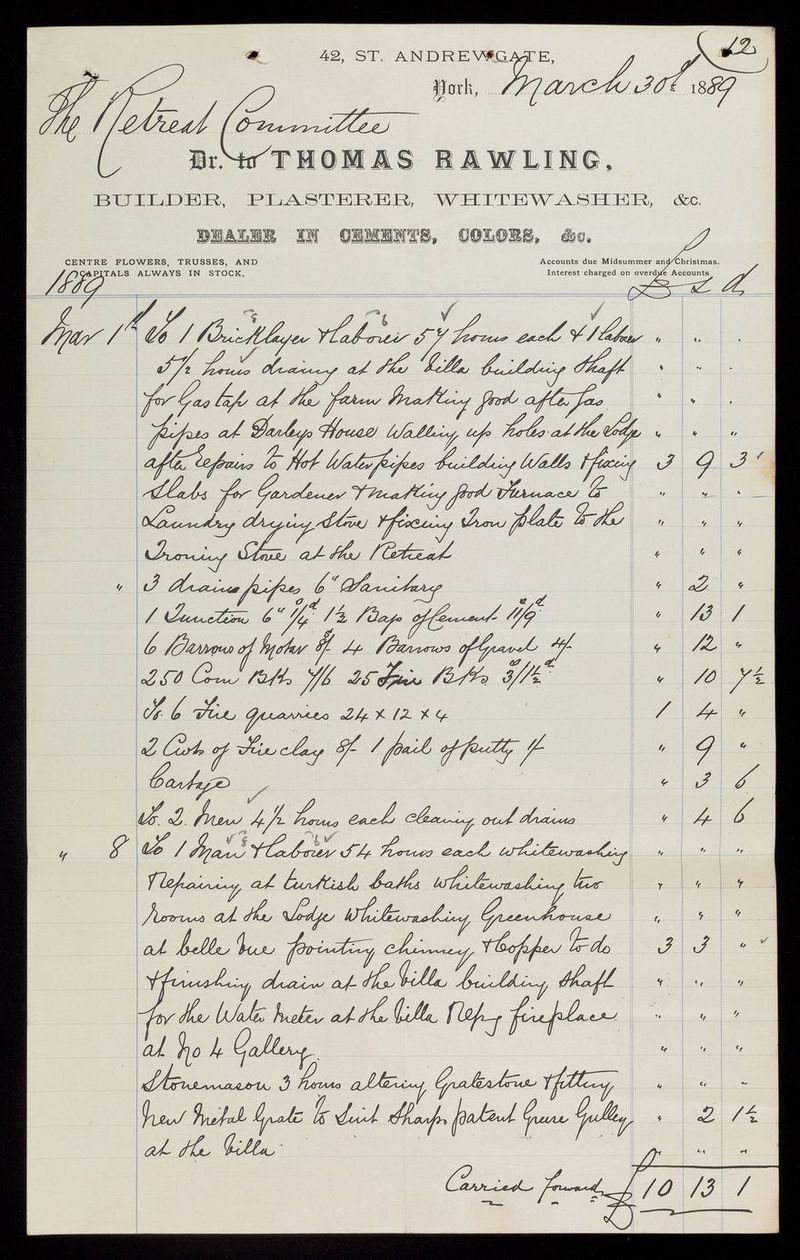 12
42, ST. ANDREWGATE,
York, March 30th 1889
The Retreat Committee
Dr. to THOMAS RAWLING,
BUILDER, PLASTERER, WHITEWASHER, &c.
DEALER IN CEMENTS, COLORS, &c.
CENTRE FLOWERS, TRUSSES, AND
CAPITALS ALWAYS IN STOCK.
Accounts due Midsummer and Christmas.
Interest charged on overdue Accounts
1889 £ s d
Mar 1st To 1 Bricklayer & laborer 57 hours each & 1 labour " " "
5½ hours draining at the Villa building Shaft " " "
for Gas tap at the farm Making good after Gas " " "
pipes at Darleys House Walling up holes at the Lodge " " "
after Repairs to Hot Water pipes building Walls & fixing 3 9 3
Slabs for Gardener & making good Furnace to " " "
Laundry drying Stove & fixing Iron plate to the " " "
Ironing Stove at the Retreat " " "
" 3 drain pipes 6" Sanitary " 2 "
1 Junction 6" 1/4 1½ Bags of Cement 11/9d " 13 1
6 Barrows of Motar 8/- 4 Barrows of Gravel 4/- " 12 "
250 Com Bks 7/6 25 Fire Bks 3/1½d " 10 7½
To 6 Fire quarries 24 x 12 x 4 1 4 "
2 Cwts of Fire clay 8/- 1 pail of putty 1/- " 9 "
Cartage " 3 6
To. 2. Men 4½ hours each cleaning out drains " 4 6
" 8 To 1 Man & labourer 54 hours each whitewashing " " "
Repairing at turkish baths whitewashing two " " "
Rooms at the Lodge Whitewashing Greenhouse " " "
at belle Vue pointing chimney & Copper to do 3 3 "
& finishing drain at the Villa building Shaft " " "
for the Water Meter at the Villa Repg fireplace " " "
at No 4 Gallery. " " "
Stonemason 3 hours altering Gratestone & fitting " " "
New Metal Grate to Sharps patent Grease Gulley " 2 1½
at the Villa " " "
Carried forward £ 10 13 1